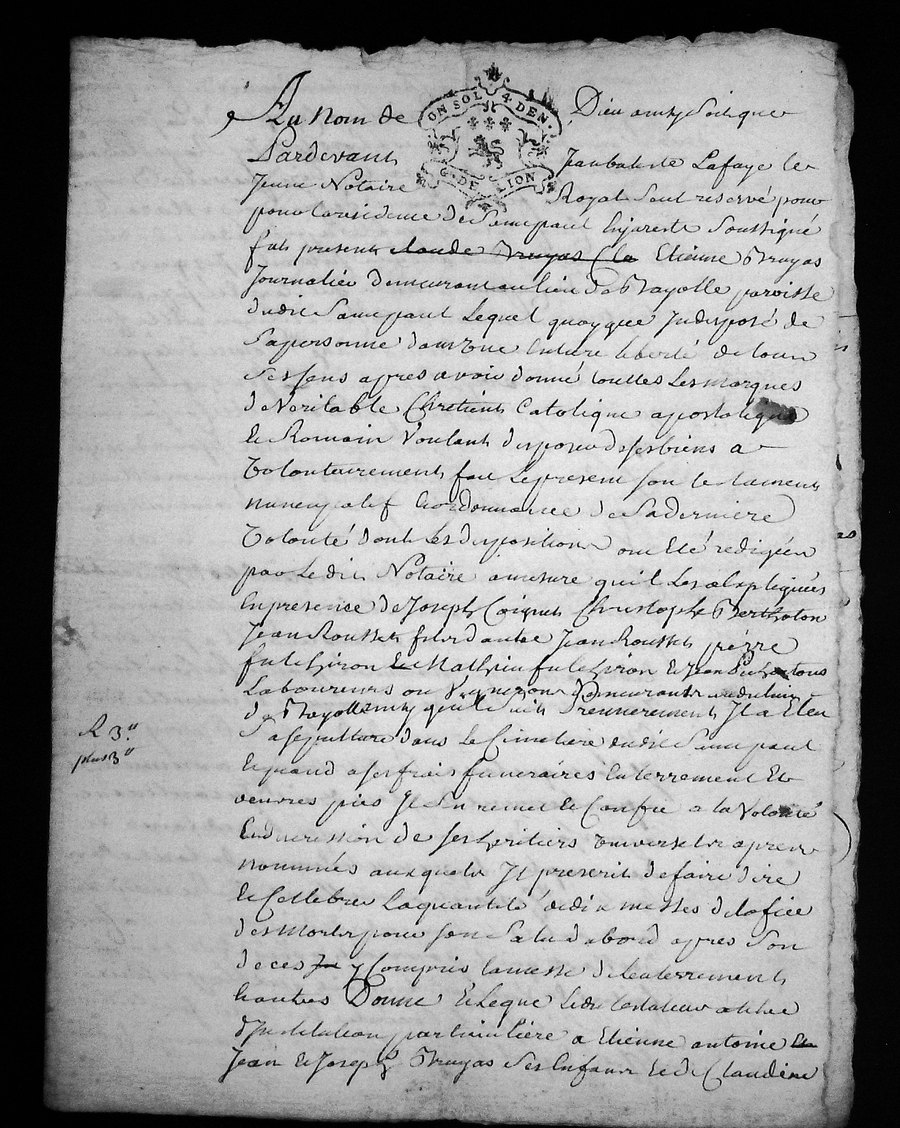 Au Nom de Dieu amy Soit que
ON SOL 4 DEN.
G. DE LION
Pardevant Jean batiste Lafaye le
Jeune Notaire Royal Seul reservé pour
pour la residence de Saint paul En jarest Soussigné
fut present claude Bruyas Cla Etienne Bruyas
Journalier demeurant au lieu de Bayolle paroisse
dudit Saint paul Lequel quoyque Indisposé de
Sa personne dans Une Entiere liberté de tous
Ses Sens apres avoir donné touttes Les Marques
de Veritable Chretient Catolique apostolique
Et Romain Voulant disposer de ses biens a
Volontairement fait Le present Son testament
nuncupatif Et ordonnance de Sa derniere
Volonté dont Les dispositions ont Eté redigées
par Ledit Notaire a mesure qu'il Les a Expliquées
En presence de Joseph Coignet Christophe Bertholon
Jean Rousset fils d'autre Jean Rousset pierre
fulchiron Et Mathieu fulchiron Et Jean tous
Laboureurs ou Vignerons Demeurants audit lieu
de Bayolle Premierement Il a Eleu
Sa Sepulture dans Le Cimetiere dudit Saint paul
R 3"
plus 3"
Et quand a ses frais funeraires Enterrement Et
oeuvres pies Il S'en remet Et Confie a la Volonté
Et discretion de Ses heritiers Universels apres
nommés auxquels Il prescrit de faire dire
Et Cellebrer La quantité de dix messes de l'ofice
des Morts pour Son Salut d'abord apres Son
deces y Compris la messe de l'enterrement
Donne Et Legue Ledit testateur a titre
d'Institution particuliere a Etienne antoine Et
Jean Et Joseph Bruyas Ses Enfans Et de Claudine